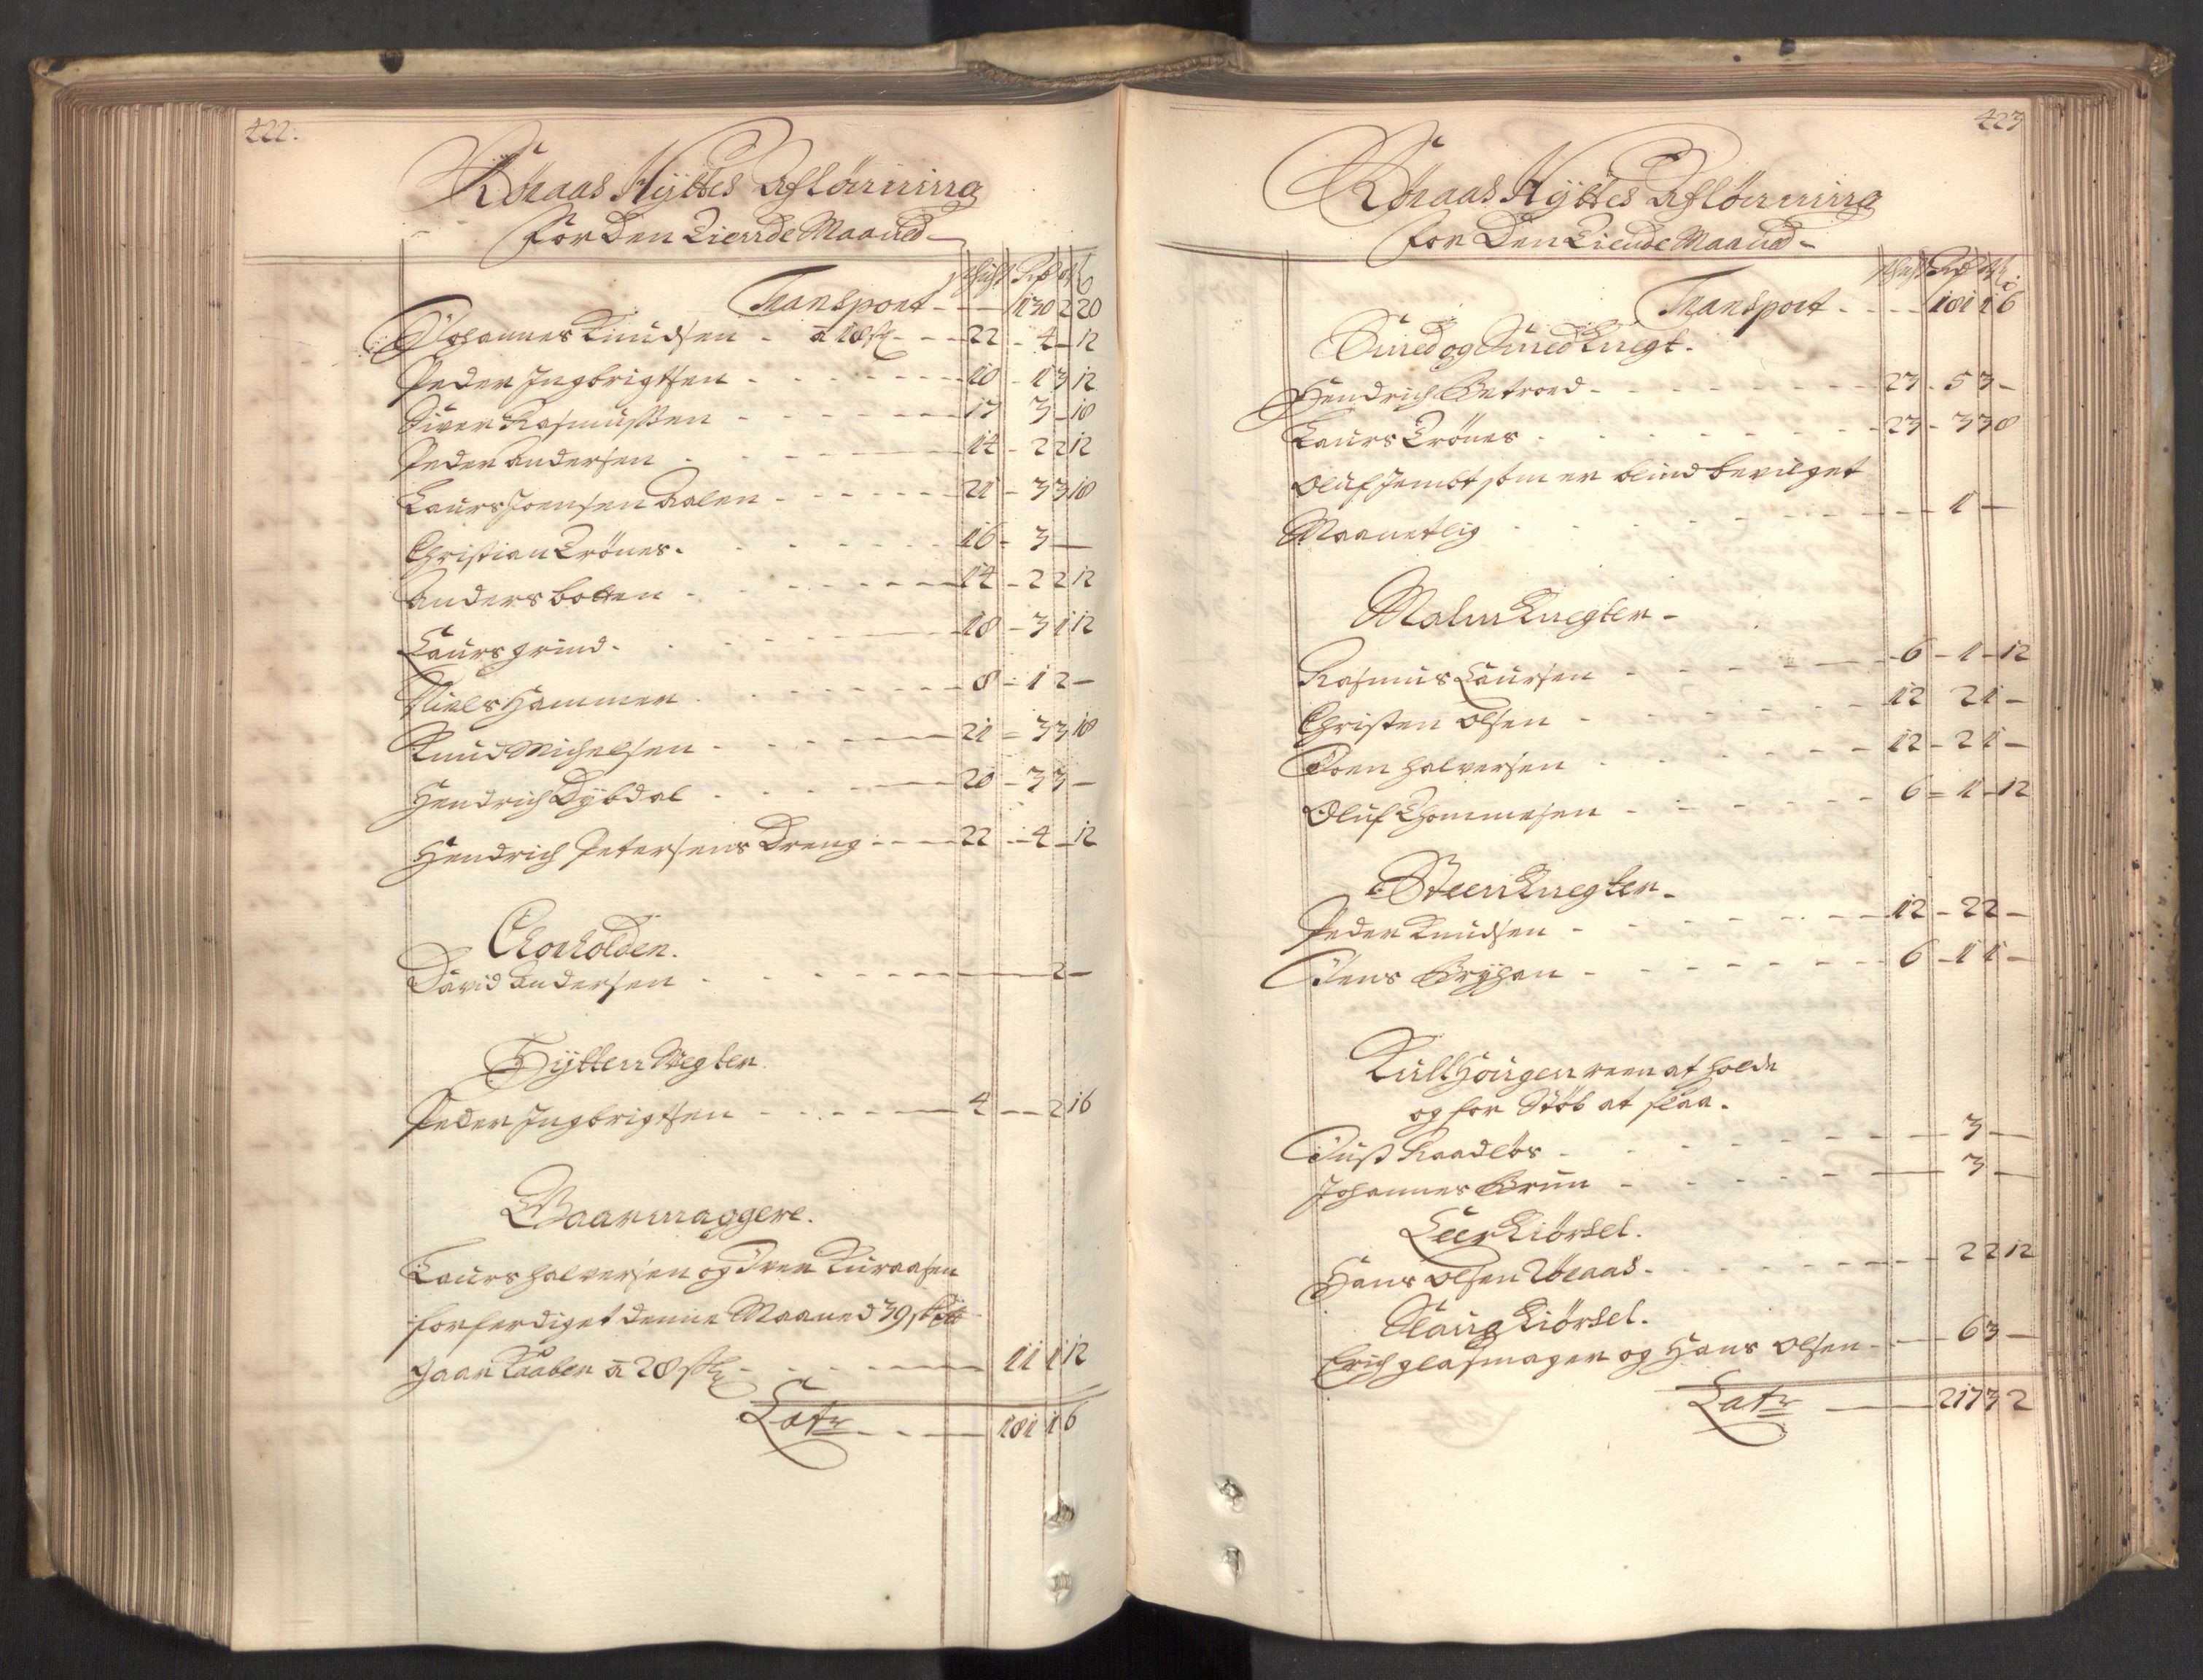 422.
Röraas Hÿttes Aflönning
for Den Tiende Maaned
Schifft Rdr ort ß
Transport - - - 130 2 20
Johannes Knudsen - a 18 ß - - 22 - 4 - 12
Peder Ingbrigtsen - - - 10 - 1 3 12
Siver Rasmussen - - - 17 3 - 18
Peder Andersen - - - 14 - 2 2 12
Laurs Joensen Aalen - - - 21 - 3 3 18
Christian Trönes - - - 16 - 3 -
Anders botten - - - 14 - 2 2 12
Laurs grind - - - 18 - 3 1 12
Niels Hammer - - - 8 - 1 2 -
Knud Michelsen - - - 21 - 3 3 18
Hendrich Dÿbdal - - - 20 - 3 3 -
Hendrich Petersens Dreng - - - 22 - 4 - 12
Chorholden.
David Andersen - - - 2 -
Hÿtten Wegter.
Peder Ingbrigtsen - - - 4 - - 2 16
Gaarmaggere.
Laurs Halversen og Iver Kuraasen
forferdiget denne Maaned 39
gaar Kaaber a 28 ß - - - 11 1 12
Lat - - - 181 1 6
423
Röraas Hÿttes Aflönning
for Den Tiende Maaned
Schifft Rdr ort ß
Transport - - - 181 1 6
Smed og Smed Knegt.
Hendrich Betrord - - - 23 - 5 3 -
Laurs Trönes - - - 23 - 3 3 8
Oluf Jembt som er blind bevilget
Maanetlig - - - 1 -
Malm Knegter -
Rasmus Laursen - - - 6 - 1 - 12
Christen Olsen - - - 12 2 1 -
Joen Halversen - - - 12 - 2 1 -
Oluf Thommesen - - - 6 - 1 - 12
Steen Knegter -
Peder Knudsen - - - 12 - 2 2 -
Jens Brÿhan - - - 6 - 1 1 -
Kull Hougen reen at holde
og for Stöb at slaa.
Just Raadlös - - - 3 -
Johannes Brun - - - 3 -
Leer Kiörsel.
Hans Olsen Röraas - - - 2 2 12
Slaug Kiörsel.
Erich glasmager og Hans Olsen - - 6 3 -
Lat - - - 217 3 2